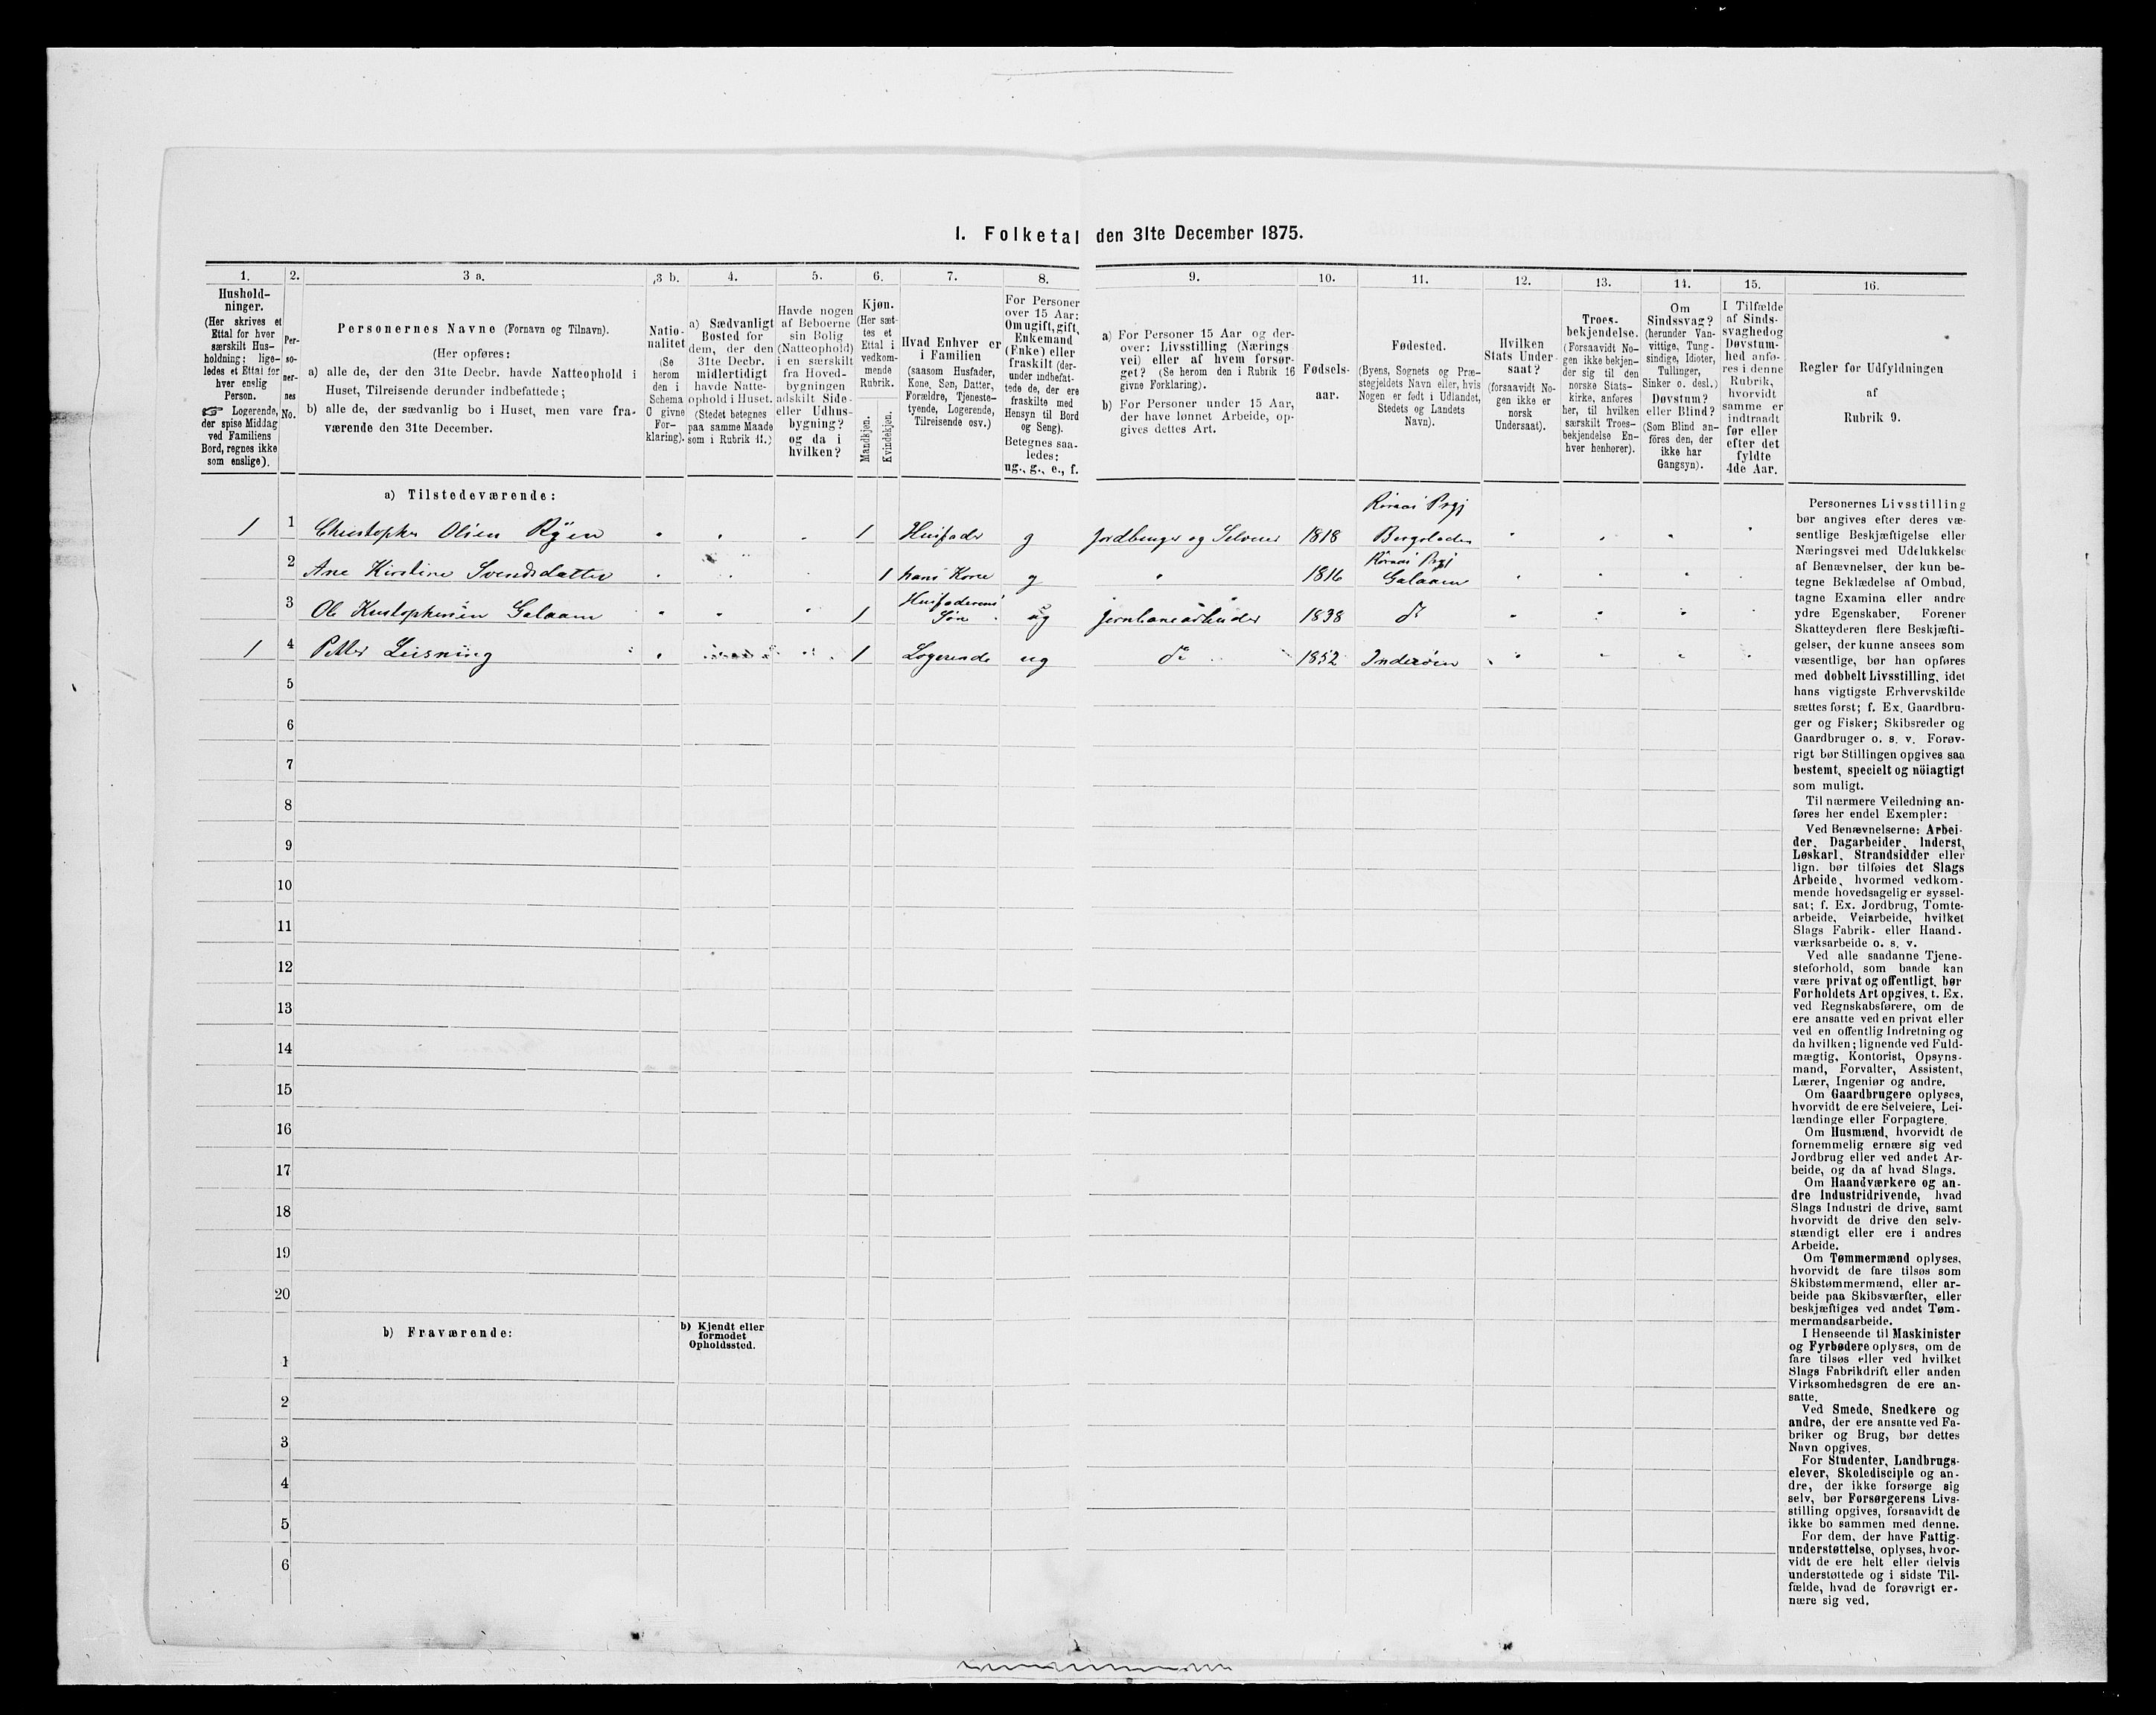 I. Folketal den 31te December 1875.
1. 2. 3 a. 3 b. 4. 5. 6. 7. 8. 9. 10. 11. 12. 13. 14. 15. 16.
Hushold-
ninger.
(Her skrives et
Ettal for hver
særskilt Hus-
holdning; lige-
ledes et Ettal for
hver enslig
Person.
☞ Logerende,
der spise Middag
ved Familiens
Bord, regnes ikke
som enslige).
Per-
so-
ner-
nes
No.
Personernes Navne (Fornavn og Tilnavn).
(Her opføres:
a) alle de, der den 31te Decbr. havde Natteophold i
Huset, Tilreisende derunder indbefattede;
b) alle de, der sædvanlig bo i Huset, men vare fra-
værende den 31te December.
Natio-
nalitet
(Se
herom
den i
Schema
C givne
For-
klaring).
a) Sædvanligt
Bosted for
dem, der den
31te Decbr.
midlertidigt
havde Natte-
ophold i Huset.
(Stedet betegnes
paa samme Maade
som i Rubrik 11.)
Havde nogen
af Beboerne
sin Bolig
(Natteophold)
i en særskilt
fra Hoved-
bygningen
adskilt Side-
eller Udhus-
bygning?
og da i
hvilken?
Kjøn.
(Her sæt-
tes et
Ettal i
vedkom-
mende
Rubrik.
Mandkjøn.
Kvindekjøn.
Hvad Enhver er
i Familien
(saasom Husfader,
Kone, Søn, Datter,
Forældre, Tjeneste-
tyende, Logerende,
Tilreisende osv.)
For Personer
over 15 Aar:
Om ugift, gift,
Enkemand
(Enke) eller
fraskilt (der-
under indbefat-
tede de, der ere
fraskilte med
Hensyn til Bord
og Seng).
Betegnes saa-
ledes:
ug., g., e., f.
a) For Personer 15 Aar og der-
over: Livsstilling (Nærings-
vei) eller af hvem forsør-
get? (Se herom den i Rubrik 16
givne Forklaring).
b) For Personer under 15 Aar,
der have lønnet Arbeide, op-
gives dettes Art.
Fødsels-
aar.
Fødested.
(Byens, Sognets og Præ-
stegjeldets Navn eller, hvis
Nogen er født i Udlandet,
Stedets og Landets
Navn).
Hvilken
Stats Under-
saat?
(forsaavidt No-
gen ikke er
norsk
Undersaat).
Troes-
bekjendelse.
(Forsaavidt No-
gen ikke bekjen-
der sig til den
norske Stats-
kirke, anføres
her, til hvilken
særskilt Troes-
bekjendelse En-
hver henhører).
Om
Sindssvag?
(herunder Van-
vittige, Tung-
sindige, Idioter,
Tullinger,
Sinker o. desl.)
Døvstum?
eller Blind?
(Som Blind an-
føres den, der
ikke har
Gangsyn).
I Tilfælde
af Sinds-
svaghed og
Døvstum-
hed anfø-
res i denne
Rubrik,
hvorvidt
samme er
indtraadt
før eller
efter det
fyldte
4de Aar.
Regler for Udfyldningen
af
Rubrik 9.
a) Tilstedeværende:
Røraas Prgj
1 1 Christopher Olsen Ryen 1 Husfader g Jordbruger og Selveier 1818 Bergstaden
Røraas Prgj
2 Ane Kirstine Svendsdatter 1 hans Kone g 1816 Galaaen
Husfaderens
3 Ole Kristophersen Galaaen 1 Søn ug Jernbanearbeider 1838 do
1 4 Petter Leisning 1 Logerende ug do 1852 Inderøen
5
6
7
8
9
10
11
12
13
14
15
16
17
18
19
20
b) Fraværende:
b) Kjendt eller
formodet
Opholdssted.
1
2
3
4
5
6
Personernes Livsstilling
bør angives efter deres væ-
sentlige Beskjæftigelse eller
Næringsvei med Udelukkelse
af Benævnelser, der kun be-
tegne Beklædelse af Ombud,
tagne Examina eller andre
ydre Egenskaber. Forener
Skatteyderen flere Beskjæfti-
gelser, der kunne ansees som
væsentlige, bør han opføres
med dobbelt Livsstilling, idet
hans vigtigste Erhvervskilde
sættes først; f. Ex. Gaardbru-
ger og Fisker; Skibsreder og
Gaardbruger o. s. v. Forøv-
rigt bør Stillingen opgives saa
bestemt, specielt og nöiagtigt
som muligt.
Til nærmere Veiledning an-
føres her endel Exempler:
Ved Benævnelserne: Arbei-
der, Dagarbeider, Inderst,
Løskarl, Strandsidder eller
lign. bør tilføies det Slags
Arbeide, hvormed vedkom-
mende hovedsagelig er syssel-
sat; f. Ex. Jordbrug, Tomte-
arbeide, Veiarbeide, hvilket
Slags Fabrik- eller Haand-
værksarbeide o. s. v.
Ved alle saadanne Tjene-
steforhold, som baade kan
være privat og offentligt, bør
Forholdets Art opgives, t. Ex.
ved Regnskabsførere, om de
ere ansatte ved en privat eller
ved en offentlig Indretning og
da hvilken; lignende ved Fuld-
mægtig, Kontorist, Opsyns-
mand, Forvalter, Assistent,
Lærer, Ingeniør og andre.
Om Gaardbrugere oplyses,
hvorvidt de ere Selveiere, Lei-
lændinge eller Forpagtere.
Om Husmænd, hvorvidt de
fornemmelig ernære sig ved
Jordbrug eller ved andet Ar-
beide, og da af hvad Slags.
Om Haandværkere og an-
dre Industridrivende, hvad
Slags Industri de drive, samt
hvorvidt de drive den selv-
stændigt eller ere i andres
Arbeide.
Om Tømmermænd oplyses,
hvorvidt de fare tilsøs som
Skibstømmermænd, eller ar-
beide paa Skibsværfter, eller
beskjæftiges ved andet Tøm-
mermandsarbeide.
I Henseende til Maskinister
og Fyrbødere oplyses, om de
fare tilsøs eller ved hvilket
Slags Fabrikdrift eller anden
Virksomhedsgren de ere an-
satte.
Ved Smede, Snedkere og
andre, der ere ansatte ved Fa-
briker og Brug, bør dettes
Navn opgives.
For Studenter, Landbrugs-
elever, Skoledisciple og an-
dre, der ikke forsørge sig
selv, bør Forsørgerens Livs-
stilling opgives, forsaavidt de
ikke bo sammen med denne.
For dem, der have Fattig-
understøttelse, oplyses, hvor-
vidt de ere helt eller delvis
understøttede og i sidste Til-
fælde, hvad de forøvrigt er-
nære sig ved.